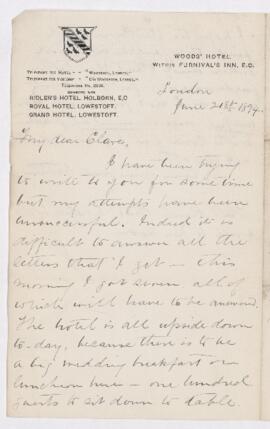 WOODS' HOTEL,
WITHIN FURNIVAL'S INN, E.C.
RIDLER'S HOTEL, HOLBORN, E.C.
ROYAL HOTEL, LOWESTOFT.
GRAND HOTEL, LOWESTOFT.
London
June 21st 1894.
My dear Clare,
I have been trying
to write to you for sometime
but my attempts have been
unsuccessful. Indeed it is
difficult to answer all the
letters that I get – this
morning I got seven all of
which will have to be answered.
The hotel is all upside down
to-day, because there is to be
a big wedding breakfast or
luncheon here – one hundred
guests to sit down to table.